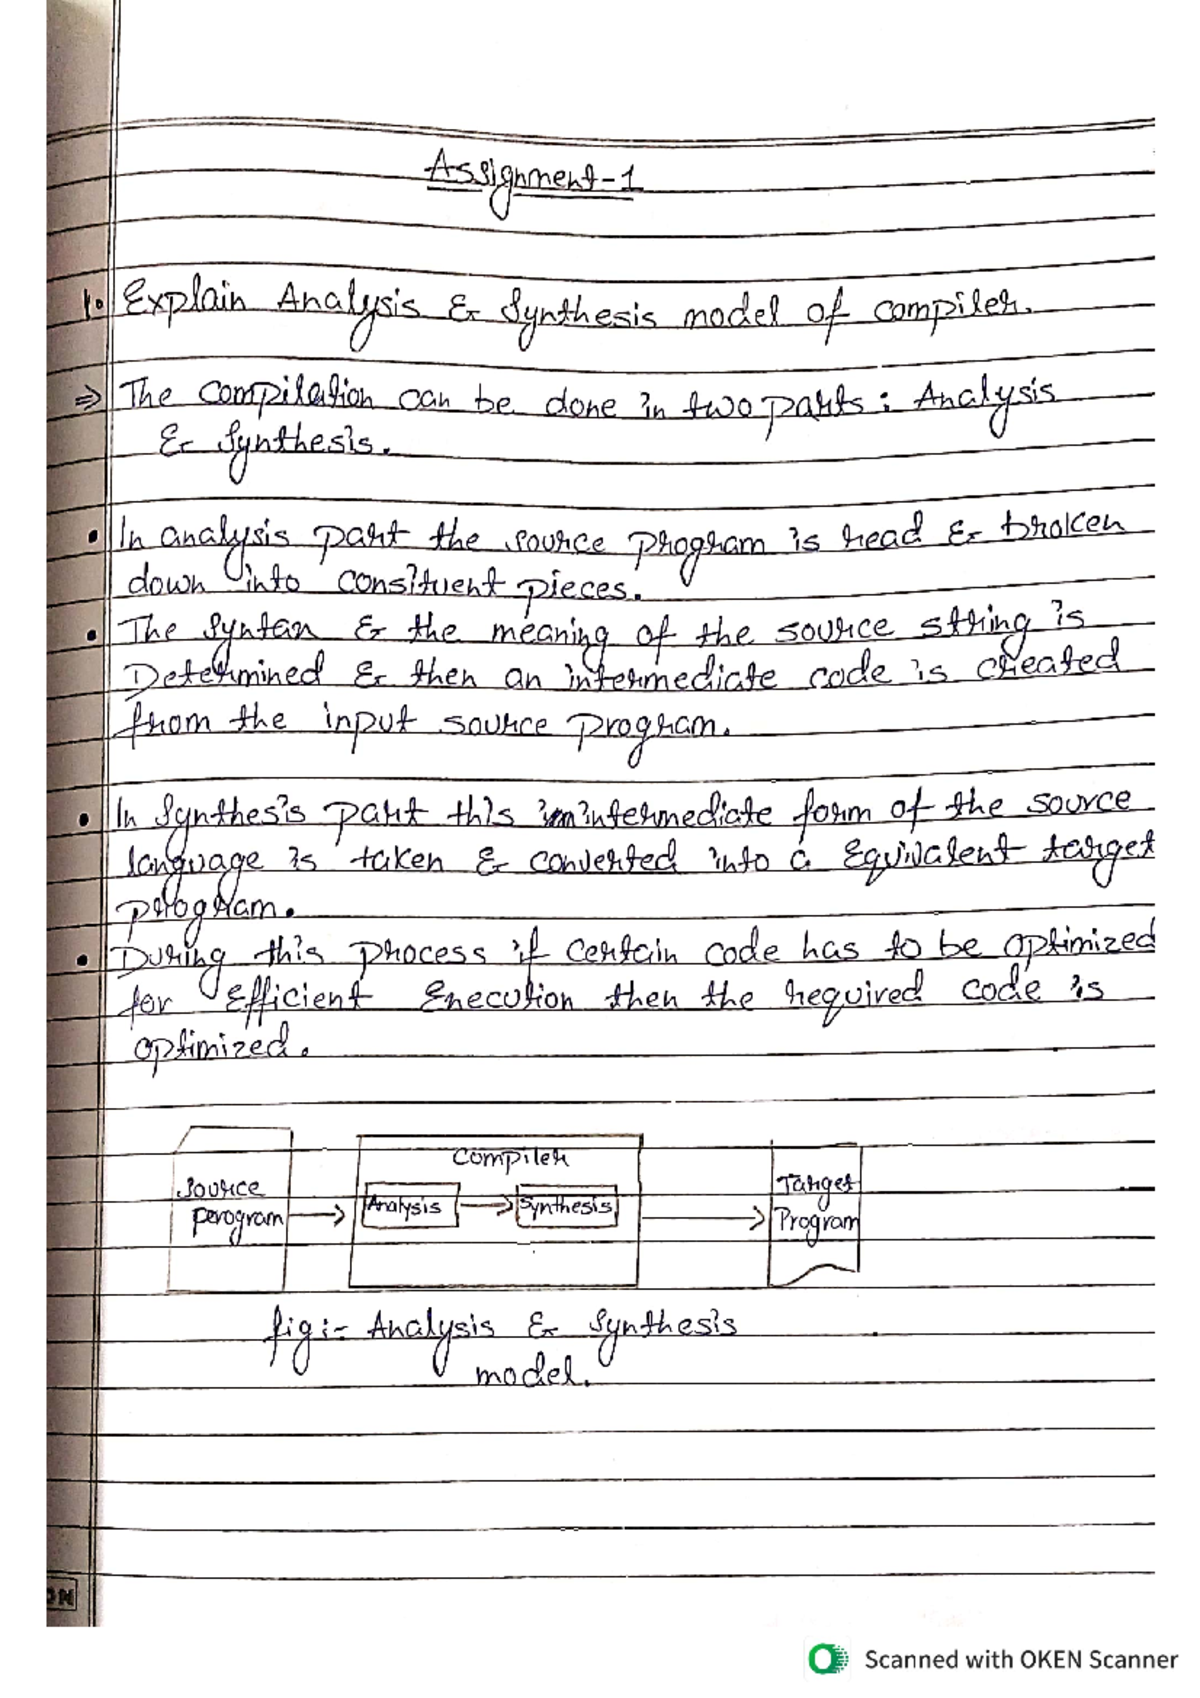 Assignment-1
1. Explain Analysis & Synthesis model of compiler.
⇒ The compilation can be done in two parts: Analysis
& Synthesis.
• In analysis part the source program is read & broken
down into constituent pieces.
• The Syntax & the meaning of the source string is
Determined & then an intermediate code is created
from the input source program.
• In Synthesis part this intermediate form of the source
language is taken & converted into a Equivalent target
program.
• During this process if certain code has to be optimized
for Efficient Execution then the required code is
optimized.
Compiler
Source
perogram
Analysis
Synthesis
Target
Program
fig:- Analysis & Synthesis
model.
ON
Scanned with OKEN Scanner